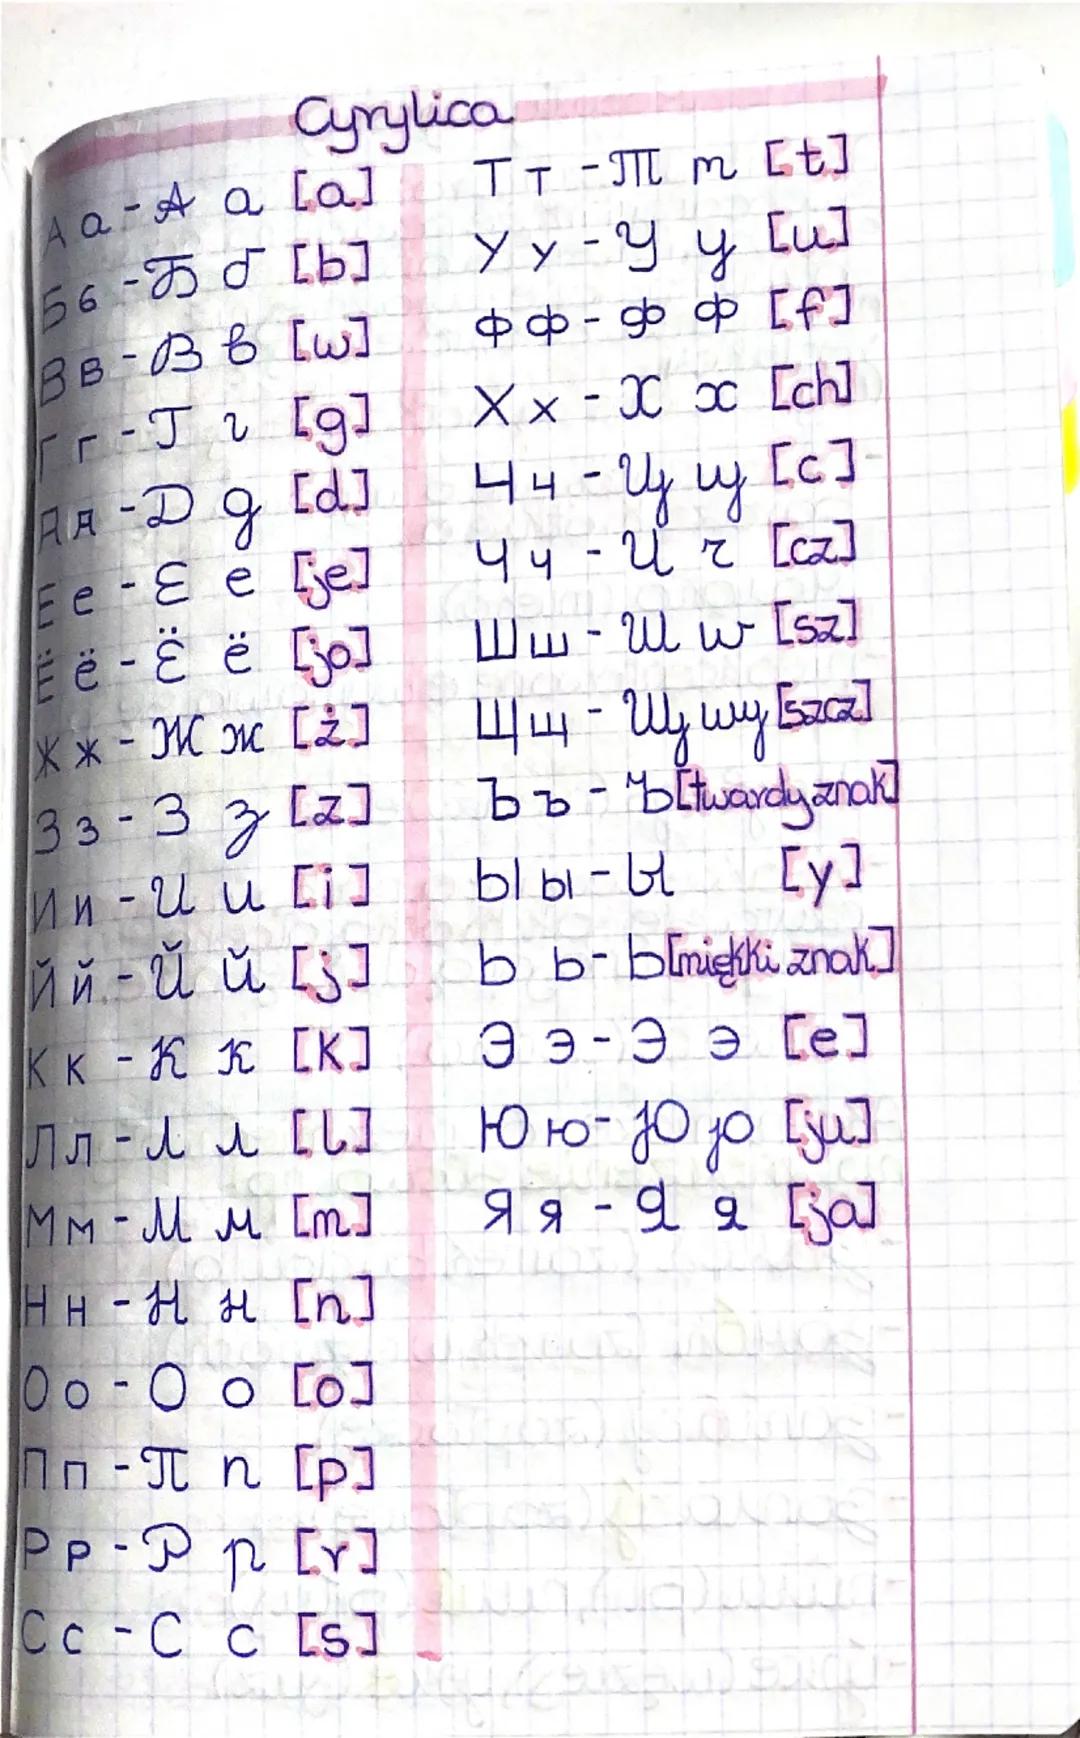 Cyrylica
Аа - А а [a]
Бб - Б б [b]
Вв - В в [w]
Гг - Г г [g]
Дд - Д д [d]
Ее - Е е [je]
Ёё - Ё ё [jo]
Жж - Ж ж [ż]
Зз - З з [z]
Ии - И и [i]
Йй - Й й [j]
Кк - К к [K]
Лл - Л л [l]
Мм - М м [m]
Нн - Н н [n]
Оо - О о [o]
Пп - П п [p]
Рр - Р р [r]
Сс - С с [s]
Тт - Т т [t]
Уу - У у [u]
Фф - ф ф [f]
Хх - Х х [ch]
Чч - Ц ц [c]
Чч - Ч ч [cz]
Шш - Ш ш [sz]
Щщ - Щ щ [szcz]
Ъъ - Ъ [twardy znak]
Ыы - Ы [y]
Ь ь - Ь [miękki znak]
Э э - Э э [e]
Юю - Ю ю [ju]
Яя - Я я [ja]